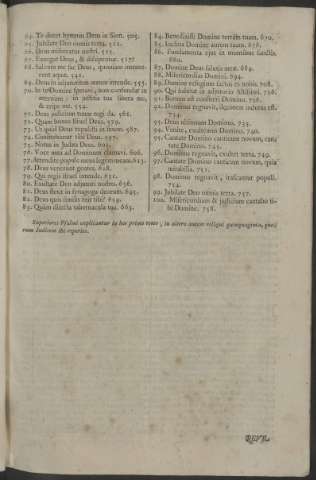 64. Te decet hymnus Deus in Sion. 505.
65. Jubilate Deo omnis terra. 512.
66. Deus misereatur nostri. 515.
67. Exurgat Deus, & dissipentur. 517.
68. Salvum me fac Deus, quoniam intraverunt aquæ. 541.
69. Deus in adiutorium meum intende. 555.
70. In te Domine speravi, non confundar in æternum; in justitia tua libera me, & eripe me.
71. Deus judicium tuum regi da. 562.
72. Quam bonus Israel Deus. 579.
73. Ut quid Deus repulisti in finem. 587.
74. Confitebimur tibi Deus.
75. Notus in Judæa Deus.
76. Voce mea ad Dominum clamavi. 608.
77. Attendite popule meus legem meam. 613.
78. Deus venerunt gentes. 628.
79. Qui regis Israel intende. 631.
80. Exultate Deo adjutori nostro. 636.
81. Deus stetit in synagoga deorum. 645.
82. Deus quis similis erit tibi? 659.
83. Quàm dilecta tabernacula tua. 665.
84. Benedixisti Domine terram tuam. 670.
85. Inclina Domine aurem tuam. 676.
86. Fundamenta ejus in montibus sanctis. 680.
87. Domine Deus salutis meæ. 689.
88. Misericordias Domini. 694.
89. Domine refugium factus es nobis. 708.
90. Qui habitat in adjutorio Altissimi. 726.
91. Bonum est confiteri Domino. 736.
92. Dominus regnavit, decorem indutus est. 734.
93. Deus ultionum Dominus. 735.
94. Venite, exultemus Domino. 740.
95. Cantate Domino canticum novum, cantate Domino. 745.
96. Dominus regnavit, exultet terra. 749.
97. Cantate Domino canticum novum, quia mirabilia. 751.
98. Dominus regnavit, irascantur populi. 754.
99. Jubilate Deo omnis terra. 757.
100. Misericordiam & judicium cantabo tibi Domine. 758.
Superiores Psalmi explicantur in hoc primo tomo; in altero autem reliqui quinquaginta, quorum Indicem ibi reperies.
REVE-